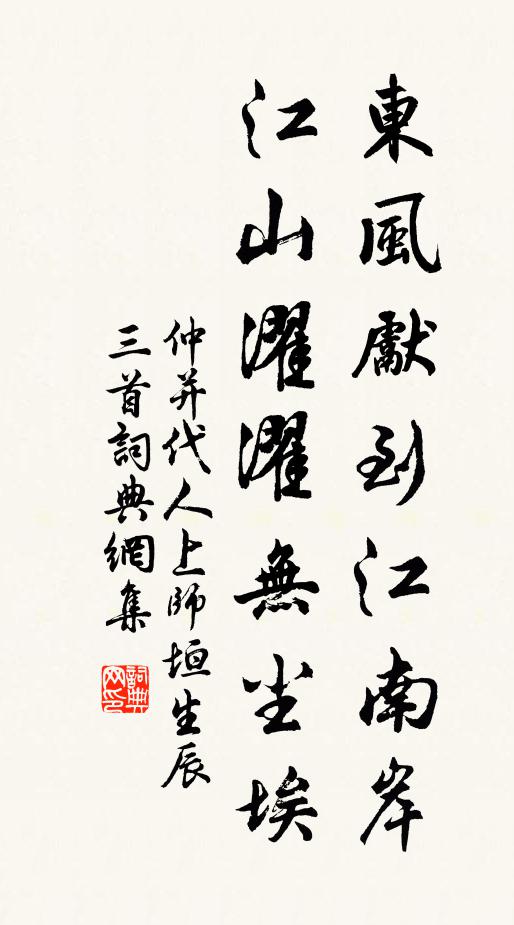 東風獻到江南岸
江山濯濯無塵埃
仲并代人上師垣生辰
三首詞典網集
詞典
网印